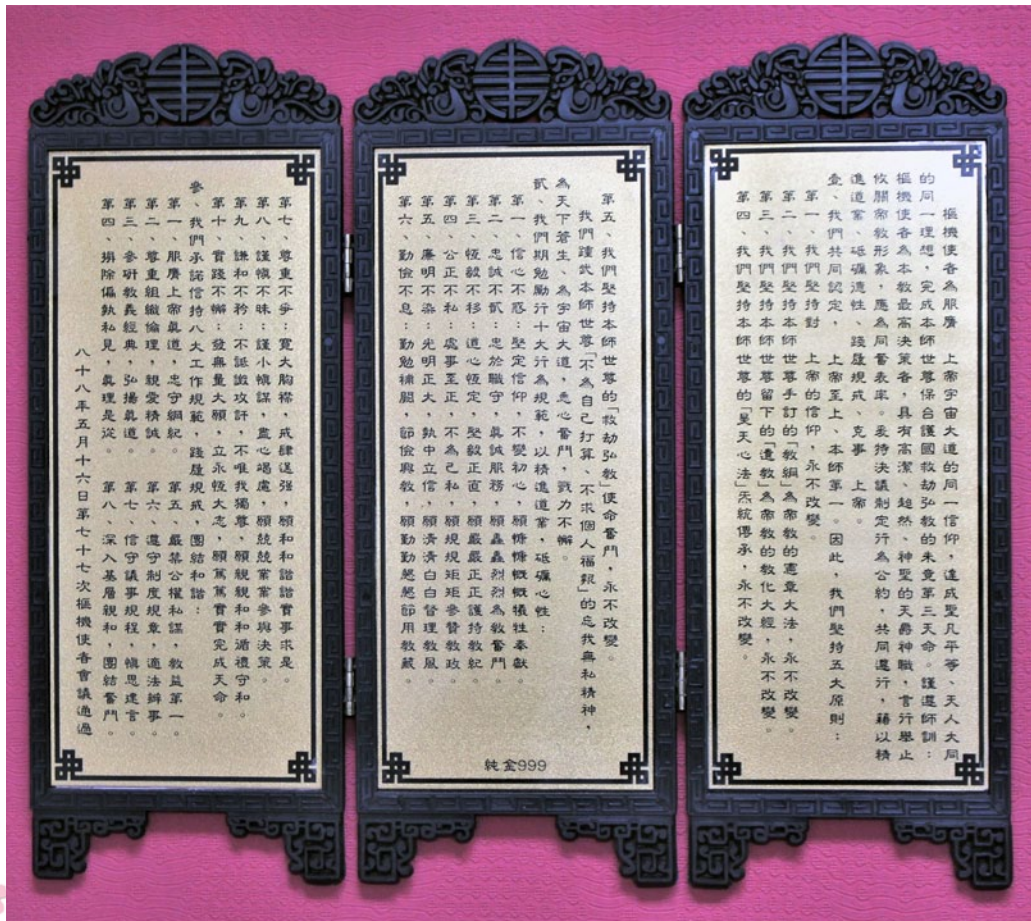 樞機使者為服膺　上帝宇宙大道的同一信仰，達成聖凡平等、天人大同
的同一理想，完成本師世尊保台護國救劫弘教的未竟第三天命。謹遵師訓：
樞機使者為本教最高決策者，具有高潔、超然、神聖的天爵神職，言行舉止
攸關帝教形象，應為同奮表率。爰持決議制定行為公約，共同遵行，藉以精
進道業、砥礪德性、踐履規戒、克事　上帝。
壹、我們共同認定，　上帝至上、本師第一。因此，我們堅持五大原則：
第一、我們堅持對　上帝的信仰，永不改變。
第二、我們堅持本師世尊手訂的「教綱」為帝教的憲章大法，永不改變。
第三、我們堅持本師世尊留下的「遺教」為帝教的教化大經，永不改變。
第四、我們堅持本師世尊的「昊天心法」炁統傳承，永不改變。
第五、我們堅持本師世尊的「救劫弘教」使命奮鬥，永不改變。
我們踵武本師世尊「不為自己打算、不求個人福報」的忘我無私精神，
為天下蒼生、為宇宙大道，悉心奮鬥，戮力不懈。
貳、我們期勉勵行十大行為規範，以精進道業，砥礪心性：
第一、信心不惑：堅定信仰，不變初心，願慷慷慨慨犧牲奉獻。
第二、忠誠不貳：忠於職守，真誠服務，願轟轟烈烈為教奮鬥。
第三、恆毅不移：道心恆定，堅毅正直，願嚴嚴正正護持教紀。
第四、公正不私：處事至正，不為己私，願規規矩矩參贊教政。
第五、廉明不染：光明正大，執中立信，願清清白白督理教風。
第六、勤儉不息：勤勉補闕，節儉興教，願勤勤懇懇節用教藏。
第七、尊重不爭：寬大胸襟，戒肆逞強，願和和諧諧實事求是。
第八、謹慎不昧：謹小慎謀，盡心竭慮，願兢兢業業參與決策。
第九、謙和不矜：不詆譭攻訐，不唯我獨尊，願親親和和循禮守和。
第十、實踐不懈：發無量大願，立永恆大志，願篤篤實實完成天命。
參、我們承諾信持八大工作規範，踐履規戒，團結和諧：
第一、服膺上帝真道，忠守綱紀。　第五、嚴禁公權私謀，教益第一。
第二、尊重組織倫理，親愛精誠。　第六、遵守制度規章，適法辦事。
第三、參研教義經典，弘揚真道。　第七、信守議事規程，慎思建言。
第四、捐除偏執私見，真理是從。　第八、深入基層親和，團結奮鬥。
八十八年五月十六日第七十七次樞機使者會議通過
純金999